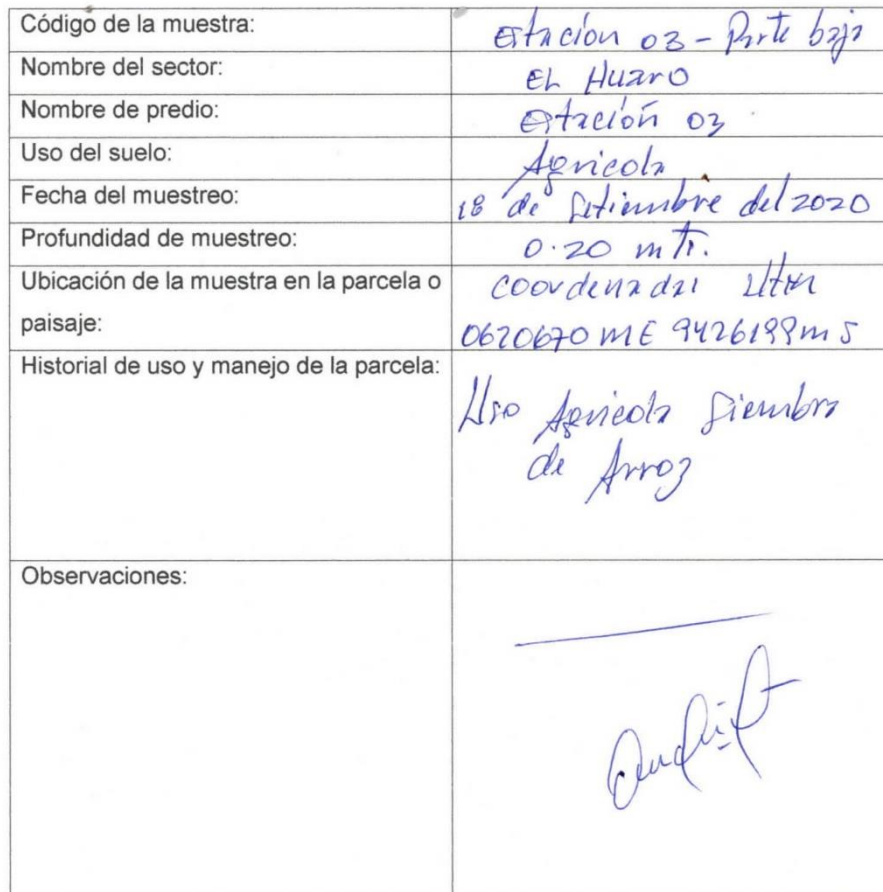 Código de la muestra: Estación 03 - Parte baja
Nombre del sector: EL Huaro
Nombre de predio: Estación 03
Uso del suelo: Agricola
Fecha del muestreo: 18 de Setiembre del 2020
Profundidad de muestreo: 0.20 mtr.
Ubicación de la muestra en la parcela o coordenadas Utm
paisaje: 0620670 mE 9426199 m S
Historial de uso y manejo de la parcela:
Uso Agricola Siembra
de Arroz
Observaciones: